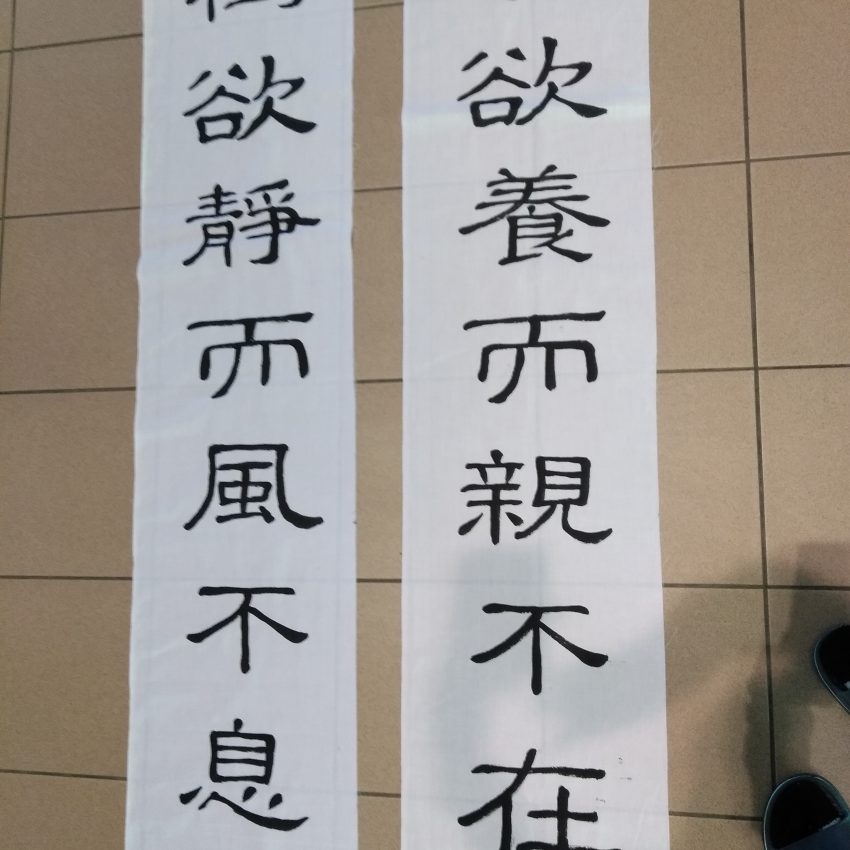 欲靜而風不息
欲養而親不在